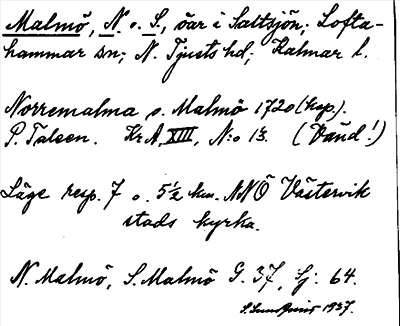 Malmö, N. o. S., öar i Saltsjön; Lofta-
hammar sn; N. Tjusts hd; Kalmar l.
Norremalma o. Malmö 1720 (hsp).
P. Talsen. Kr A, XIII, N:o 13. (Vänd!)
Läge resp. 7 o. 5½ km. NNÖ Västervik
stads kyrka.
N. Malmö, S. Malmö G. 37, Sj. 64.
S. Lundqvist 1937.